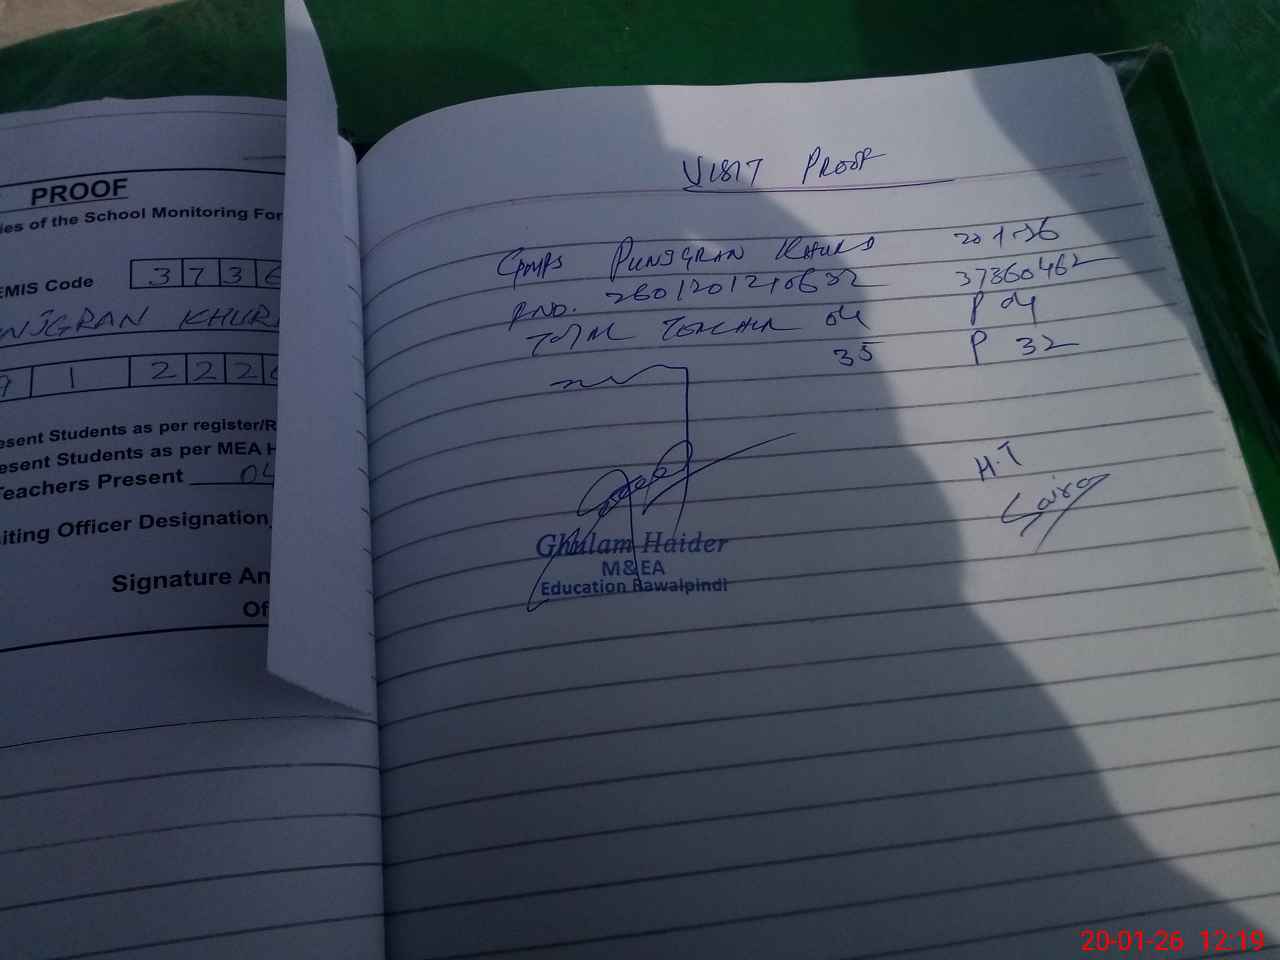 PROOF
ies of the School Monitoring For
EMIS Code 3 7 3 6
NJGRAN KHUR
9 1 2 2 2
esent Students as per register/R
esent Students as per MEA H
Teachers Present 04
iting Officer Designation
Signature An
Of
VISIT PROOF
GMPS PUNJGRAN KHURD 20-1-26
R NO. 2601201210632 37360462
TOTAL TEACHER 04 P 04
35 P 32
H.T
Saira
Ghulam Haider
M&EA
Education Rawalpindi
20-01-26 12:19